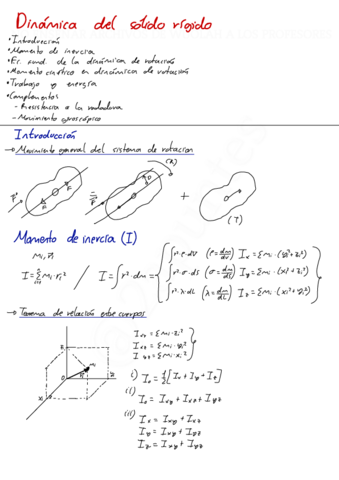 Dinámica del sólido rígido
• Introducción
• Momento de inercia
• Ec. fund. de la dinámica de rotación
• Momento cinético en dinámica de rotación
• Trabajo y energía
• Complementos
- Resistencia a la rodadura
- Movimiento giroscópico
Introducción
→ Movimiento general del sistema de rotación
(R)
+
(T)
Momento de inercia (I)
I = Σ mi · ri² / I = ∫ r² · dm =
∫ r² · ρ · dV (ρ = dm/dV) Ix = Σ mi · (yi² + zi²)
∫ r² · σ · dS (σ = dm/dS) Iy = Σ mi · (xi² + zi²)
∫ r² · λ · dL (λ = dm/dL) Iz = Σ mi · (xi² + yi²)
→ Teorema de relación entre cuerpos
Ixy = Σ mi · zi²
Ixz = Σ mi · yi²
Iyz = Σ mi · xi²
i) Io = 1/2 [Ix + Iy + Iz]
ii) Io = Ixy + Ixz + Iyz
iii) Ix = Ixy + Ixz
Iy = Ixy + Iyz
Iz = Ixz + Iyz